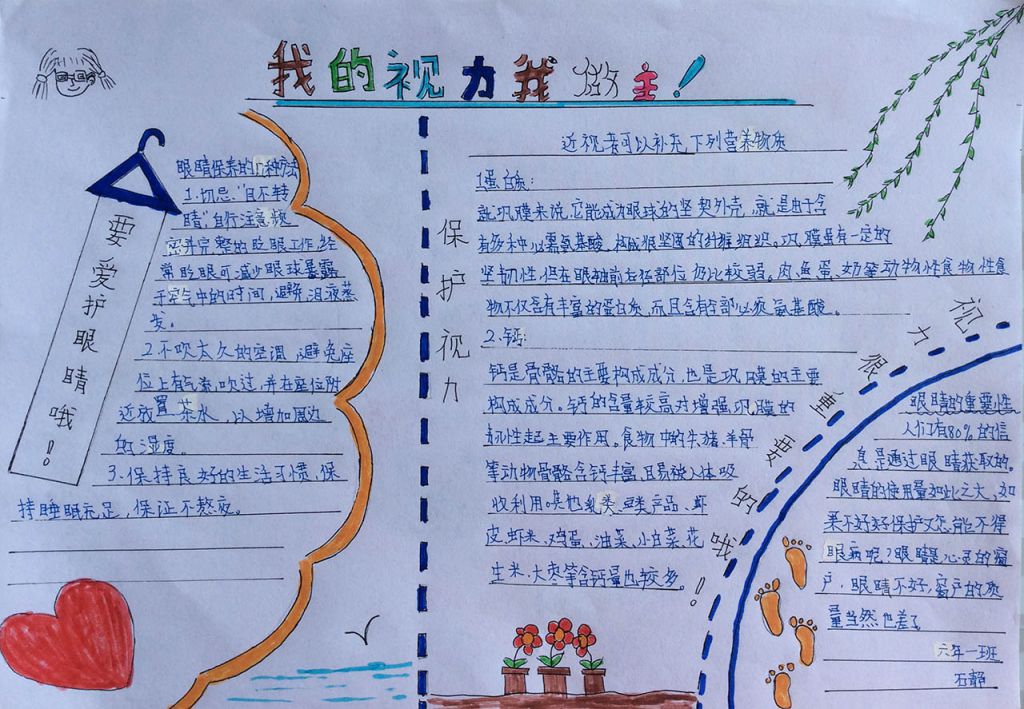 我的视力我做主！
要爱护眼睛哦！
眼睛保养的几种方法
1.切忌"目不转
睛"，自行注意频
密并完整的眨眼工作，经
常眨眼可减少眼球暴露
于空气中的时间，避免泪液蒸
发。
2.不吹太久的空调，避免座
位上有气流吹过，并在座位附
近放置茶水，以增加周边
的湿度。
3.保持良好的生活习惯，保
持睡眠充足，保证不熬夜。
保护视力
近视者可以补充下列营养物质
1蛋白质：
就巩膜来说，它能成为眼球的坚契外壳，就是由于含
有多种必需氨基酸，构成很坚固的纤维组织。巩膜虽有一定的
坚韧性，但在眼轴前后径部位仍比较弱。肉、鱼、蛋、奶等动物性食物性食
物不仅含有丰富的蛋白质，而且含有全部必须氨基酸。
2.钙：
钙是骨骼的主要构成成分，也是巩膜的主要
构成成分。钙的含量较高对增强巩膜的
韧性起主要作用。食物中的牛、猪、羊骨
等动物骨骼含钙丰富，且易被人体吸
收利用。其他乳类、豆类产品、虾
皮、虾米、鸡蛋、油菜、小白菜、花
生米、大枣等含钙量也较多。
视力很重要的哦！
眼睛的重要性
人们有80%的信
息是通过眼睛获取的。
眼睛的使用量如此之大，如
果不好好保护又怎能不得
眼病呢？眼睛是心灵的窗
户，眼睛不好，窗户的质
量当然也差了
六年一班
石静